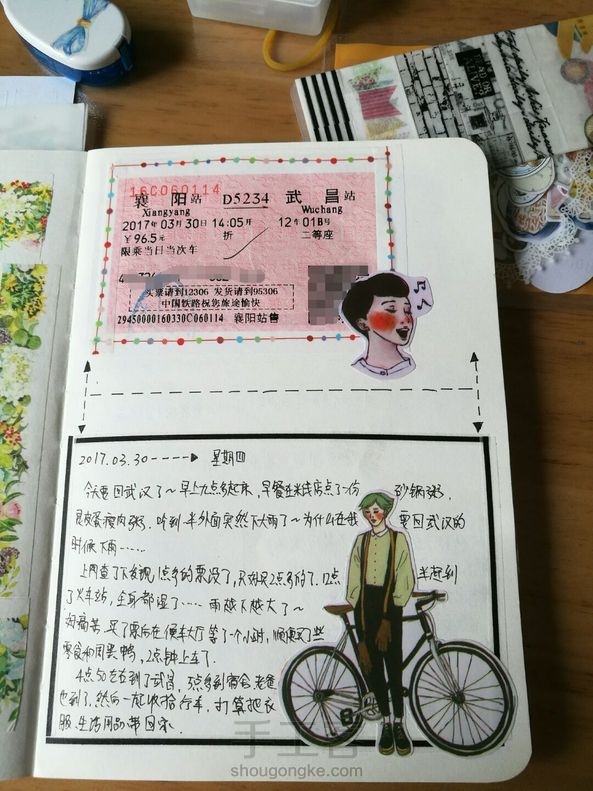 16C060114
襄 阳站 D5234 武 昌站
Xiangyang Wuchang
2017年03月30日14:05开 12车01B号
￥96.5元 折 二等座
限乘当日当次车
买票请到12306 发货请到95306
中国铁路祝您旅途愉快
Z9450000160330C060114 襄阳站售
2017.03.30 星期四
今天要回武汉了~早上九点多起床,早餐在米线店点了一份 砂锅粥,
是皮蛋瘦肉粥.吃到一半外面突然下大雨了~为什么在我 要回武汉的
时候下雨……
上网查了下发现1点多的票没了,只好买2点多的了.12点 半赶到
了火车站,全身都湿了…… 雨越下越大了~
好痛苦.买了票后在候车大厅等了一个小时,顺便买了些
零食和周黑鸭,2点钟上车了.
4点50左右到了武昌,5点多到宿舍,老爸
也到了,然后一起收拾行李,打算把衣
服、生活用品带回家.
手工客
shougongke.com